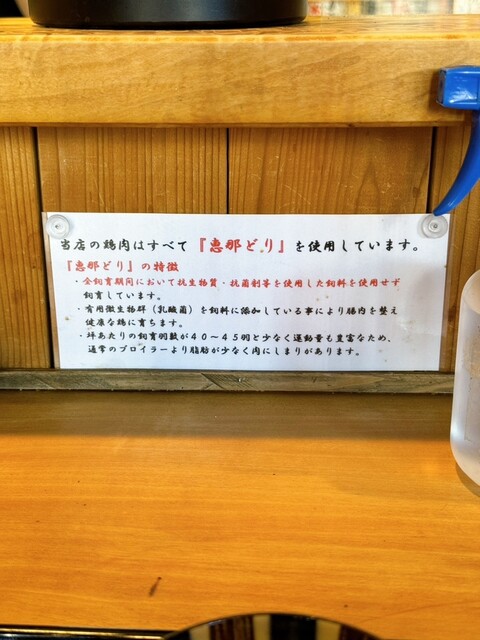 当店の鶏肉はすべて『恵那どり』を使用しています。
『恵那どり』の特徴
・全飼育期間において抗生物質・抗菌剤等を使用した飼料を使用せず
飼育しています。
・有用微生物群（乳酸菌）を飼料に添加している事により腸内を整え
健康な鶏に育ちます。
・坪あたりの飼育羽数が40～45羽と少なく運動量も豊富なため、
通常のブロイラーより脂肪が少なく肉にしまりがあります。